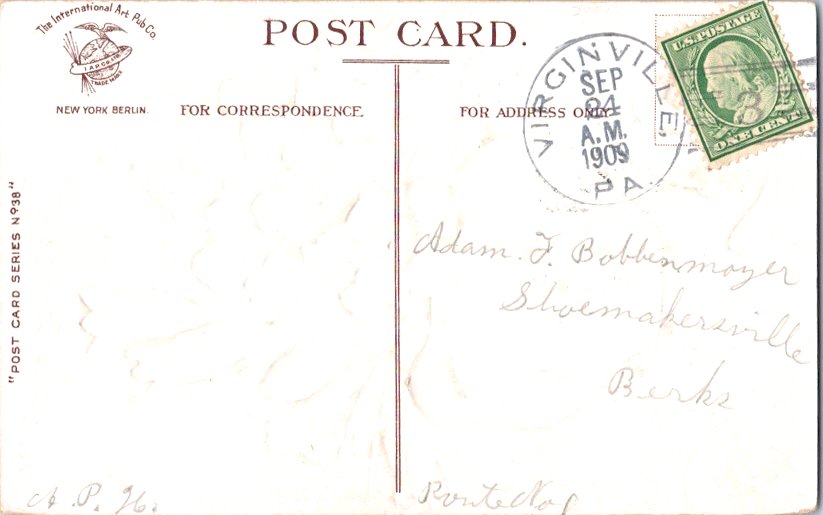 The International Art Pub Co.
I.A.P.Co.
TRADE MARK
NEW YORK BERLIN.
POST CARD.
FOR CORRESPONDENCE.
FOR ADDRESS ONLY.
VIRGINVILLE,
SEP
24
A.M.
1909
PA
U.S. POSTAGE
3
ONE CENT
"POST CARD SERIES No 38"
Adam. F. Bobbenmoyer
Shoemakersville
Berks
A. P. H.
Route No 1